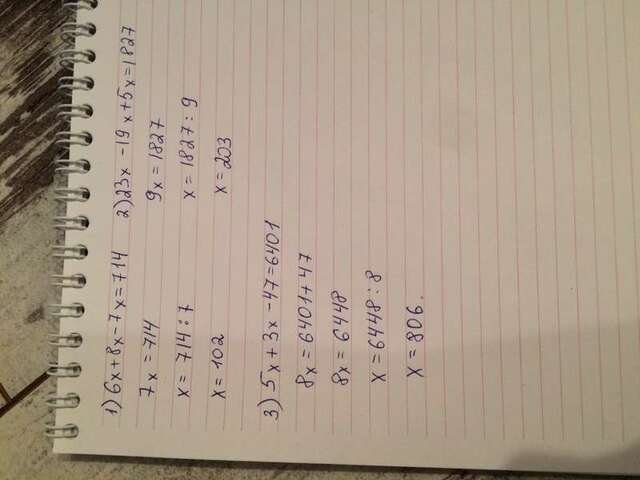 1) 6x+8x-7x=714
7x=714
x=714:7
x=102
2) 23x-19x+5x=1827
9x=1827
x=1827:9
x=203
3) 5x+3x-47=6401
8x=6401+47
8x=6448
x=6448:8
x=806.